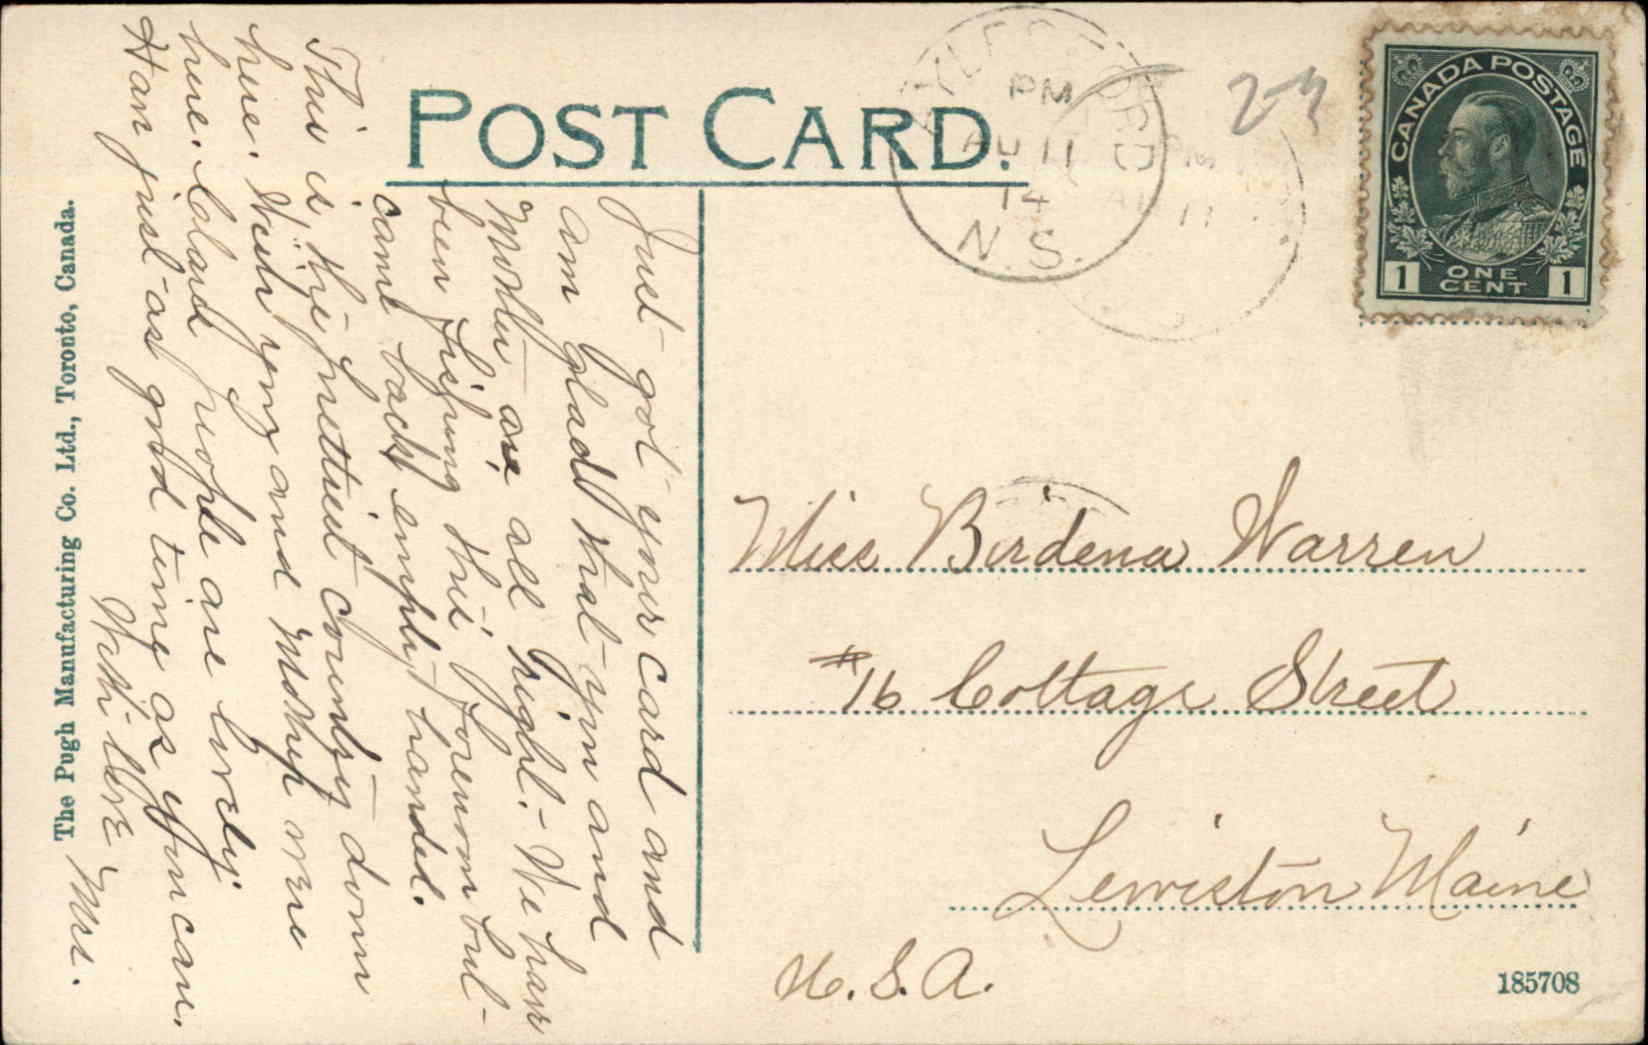 POST CARD.
PM
AU 11
14
N.S.
PM
AU 11
2-3
CANADA POSTAGE
1 ONE CENT 1
Just got your card and
am glad that you and
Mother are all right. - We have
been fishing this forenoon but -
came back empty handed.
This is the prettiest country down
here. Wish you and Mother were
here. Island people are lovely.
Have just as good time as you can.
With love
Mrs.
The Pugh Manufacturing Co. Ltd., Toronto, Canada.
Miss Birdena Warren
#16 Cottage Street
Lewiston Maine
U.S.A.
185708